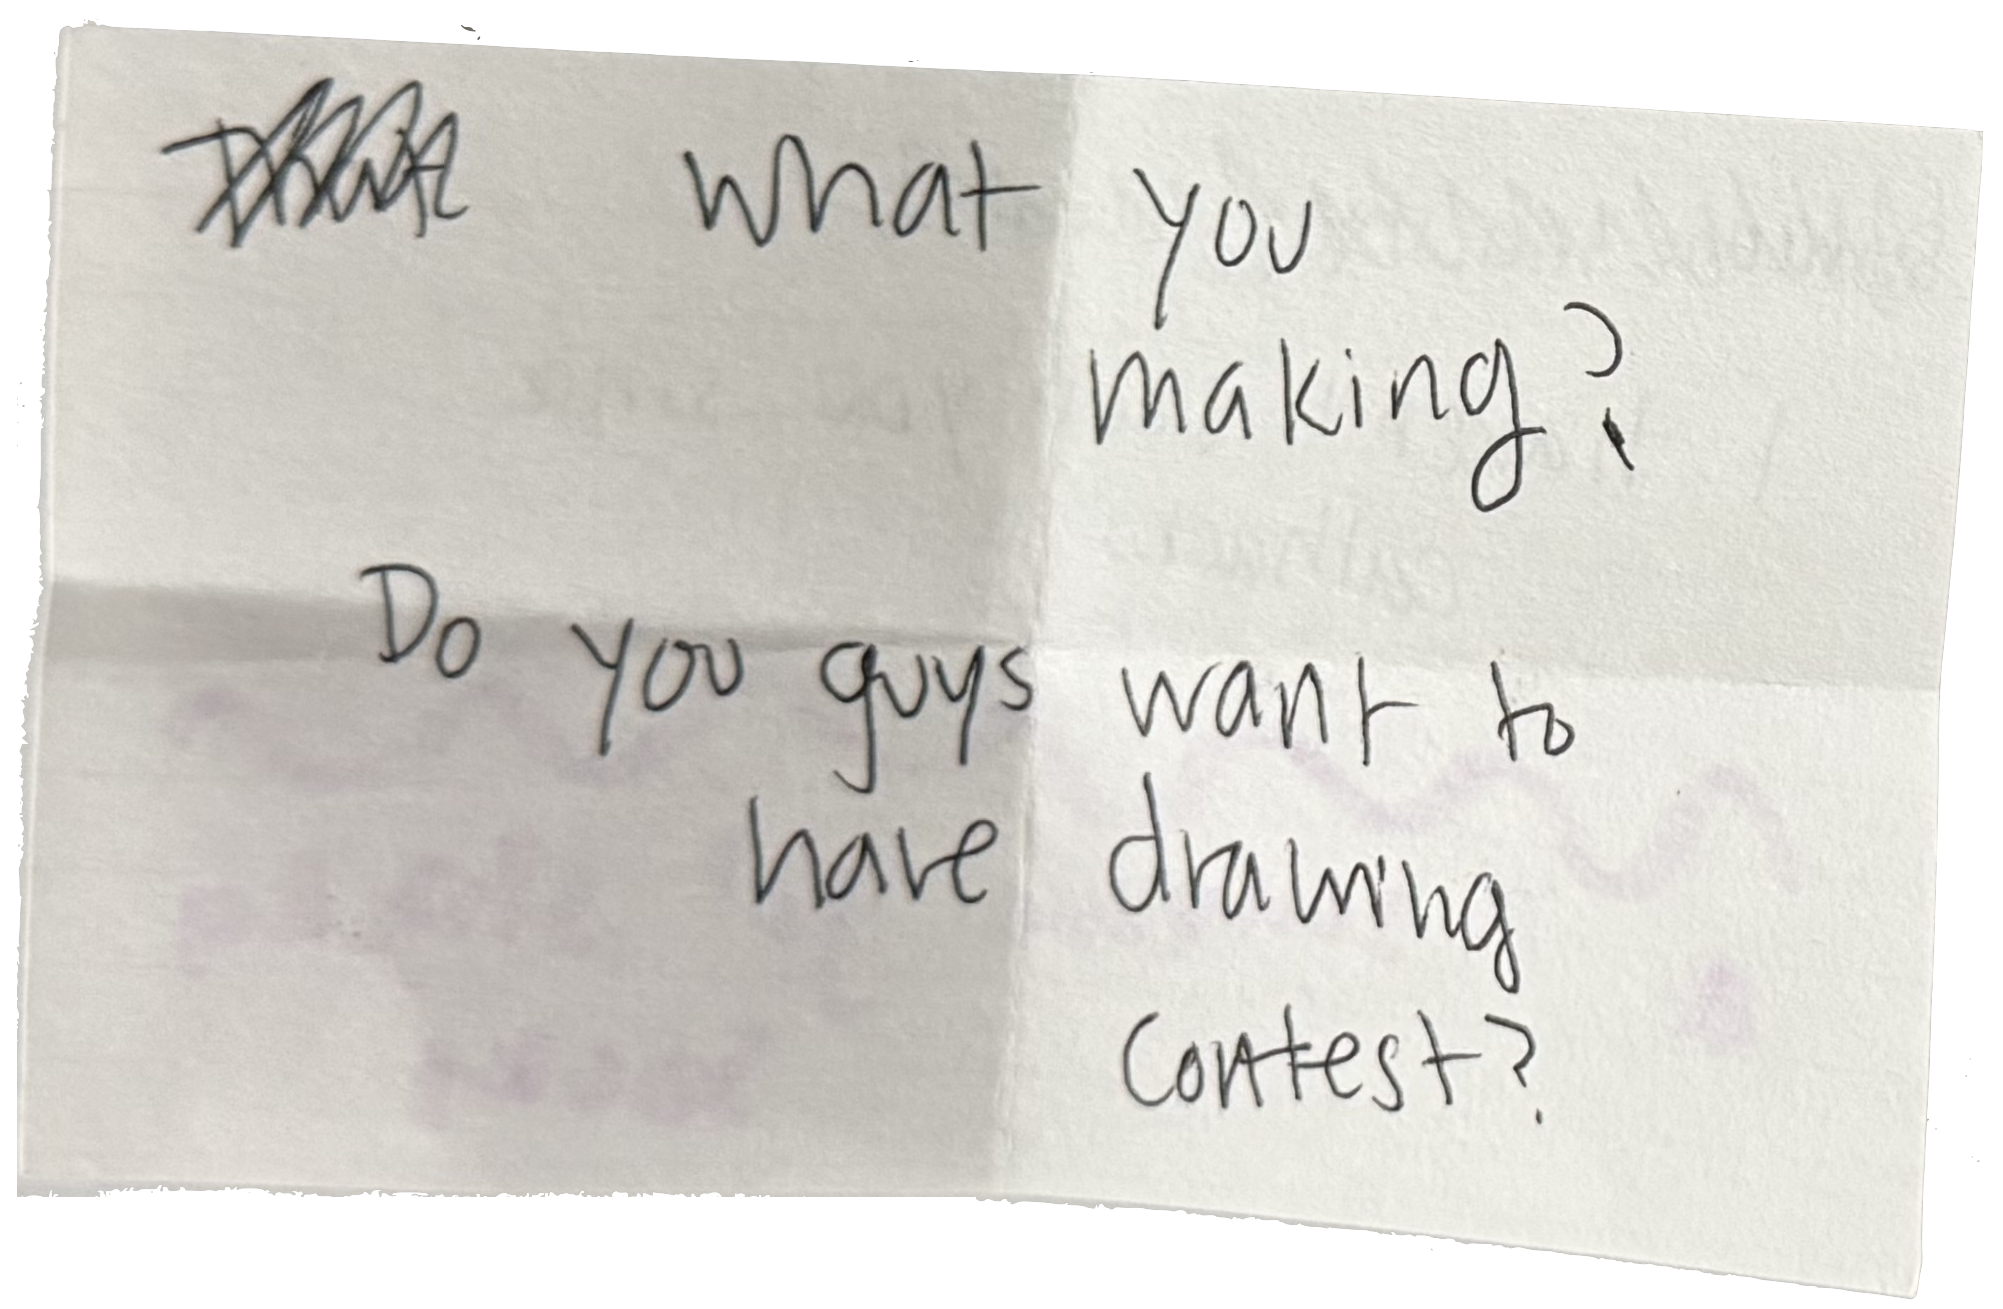 what you
making?
Do you guys want to
have drawing
contest?